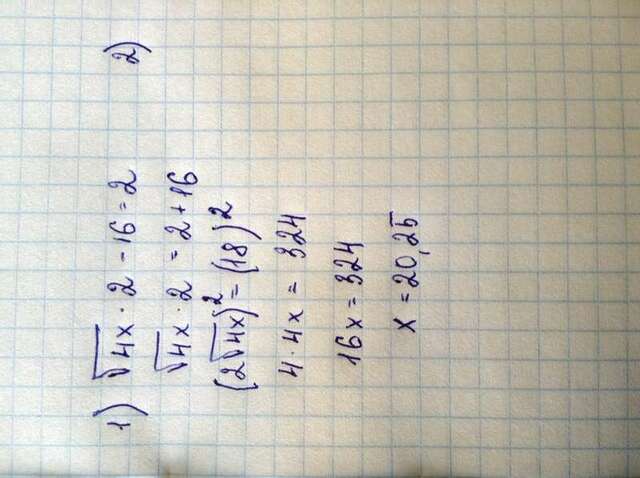 1) √4x · 2 - 16 = 2 2)
√4x · 2 = 2 + 16
(2√4x)² = (18)²
4 · 4x = 324
16x = 324
x = 20,25